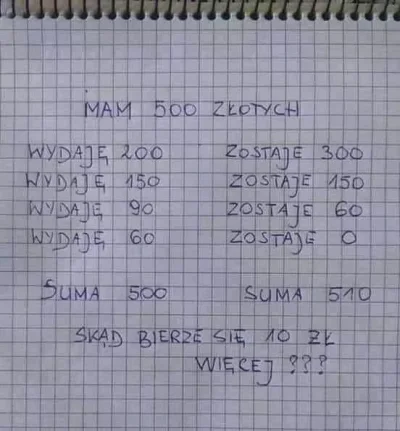 MAM 500 ZŁOTYCH
WYDAJĘ 200 ZOSTAJE 300
WYDAJĘ 150 ZOSTAJE 150
WYDAJĘ 90 ZOSTAJE 60
WYDAJĘ 60 ZOSTAJE 0
SUMA 500 SUMA 510
SKĄD BIERZE SIĘ 10 ZŁ
WIĘCEJ ???